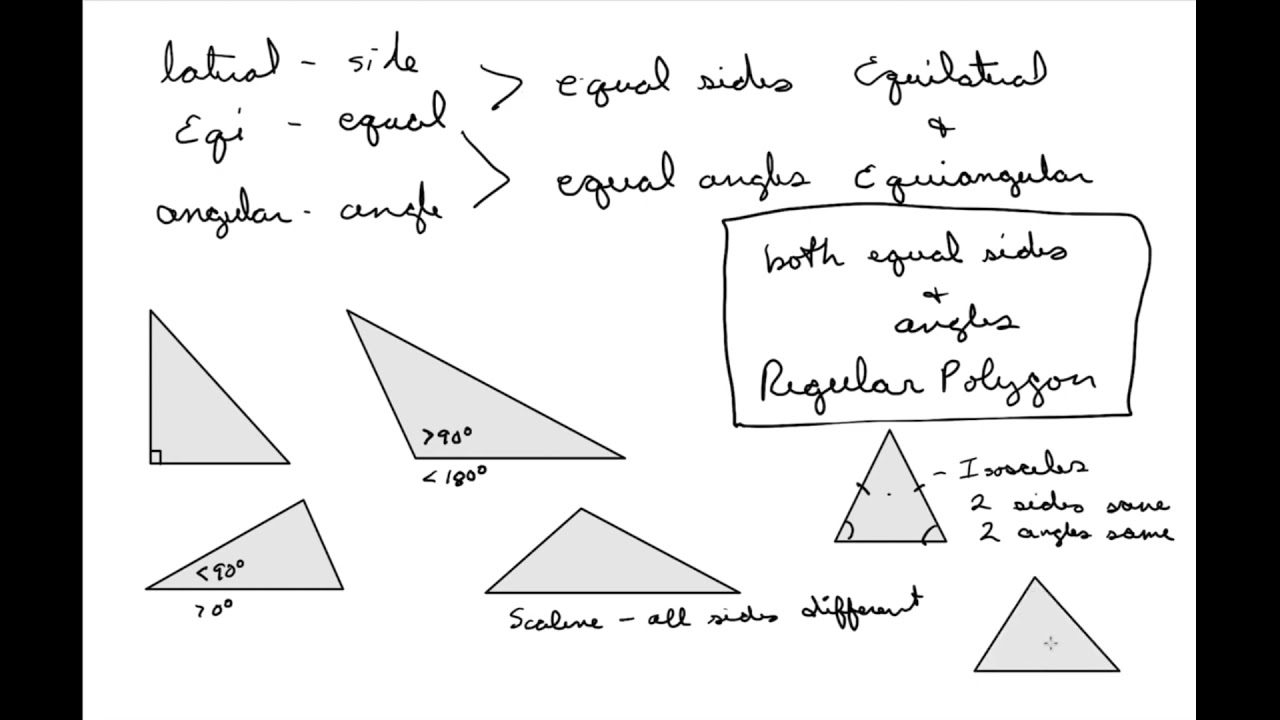 lateral - side
Eqi - equal
angular - angle
> equal sides Equilateral
&
> equal angles Equiangular
both equal sides
&
angles
Regular Polygon
>90°
<180°
- Isosceles
2 sides same
2 angles same
<90°
>0°
Scalene - all sides different